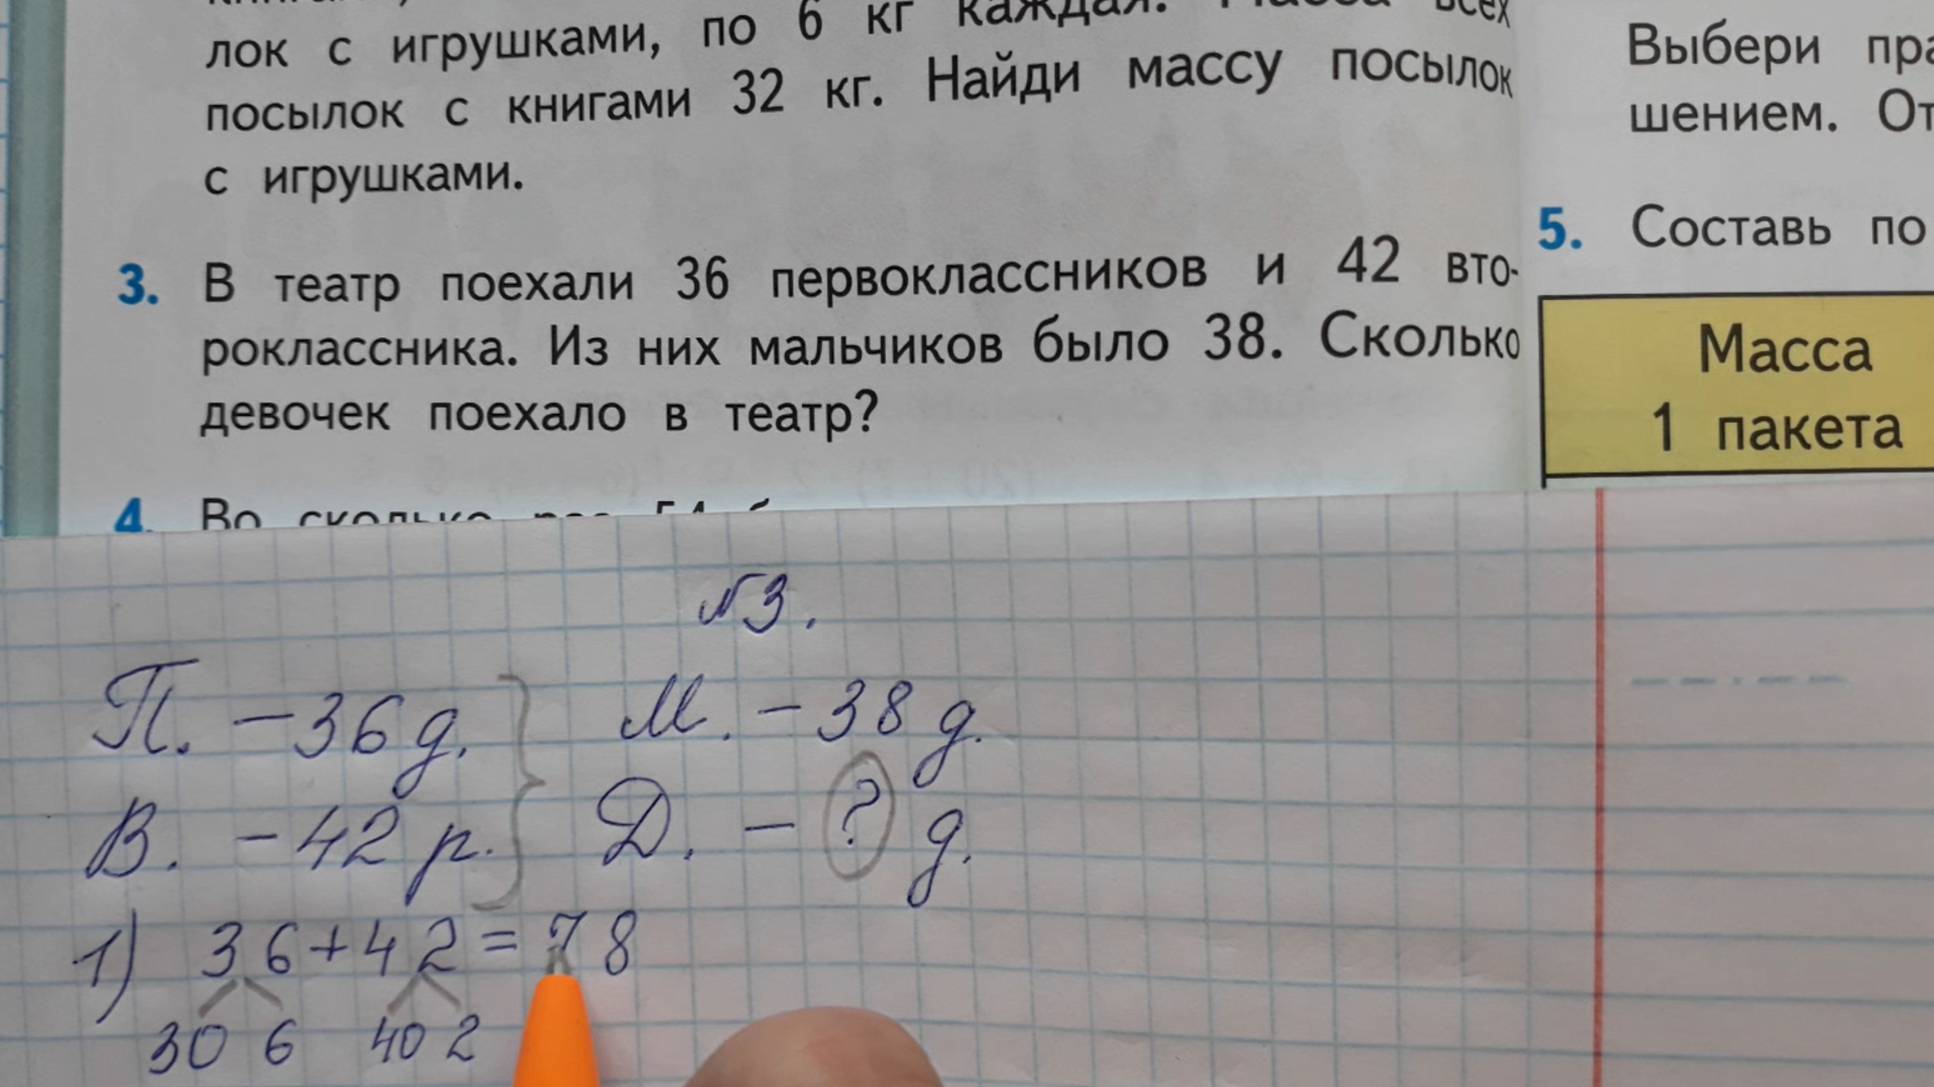 лок с игрушками, по 6 кг каждая. Масса всех
посылок с книгами 32 кг. Найди массу посылок
с игрушками.
3. В театр поехали 36 первоклассников и 42 вто-
роклассника. Из них мальчиков было 38. Сколько
девочек поехало в театр?
4. Во сколько раз 54
Выбери пра
шением. От
5. Составь по
Масса
1 пакета
№3.
П. - 36 д.
В. - 42 р.
М. - 38 д.
Д. - ? д.
1) 36+42=78
30 6 40 2